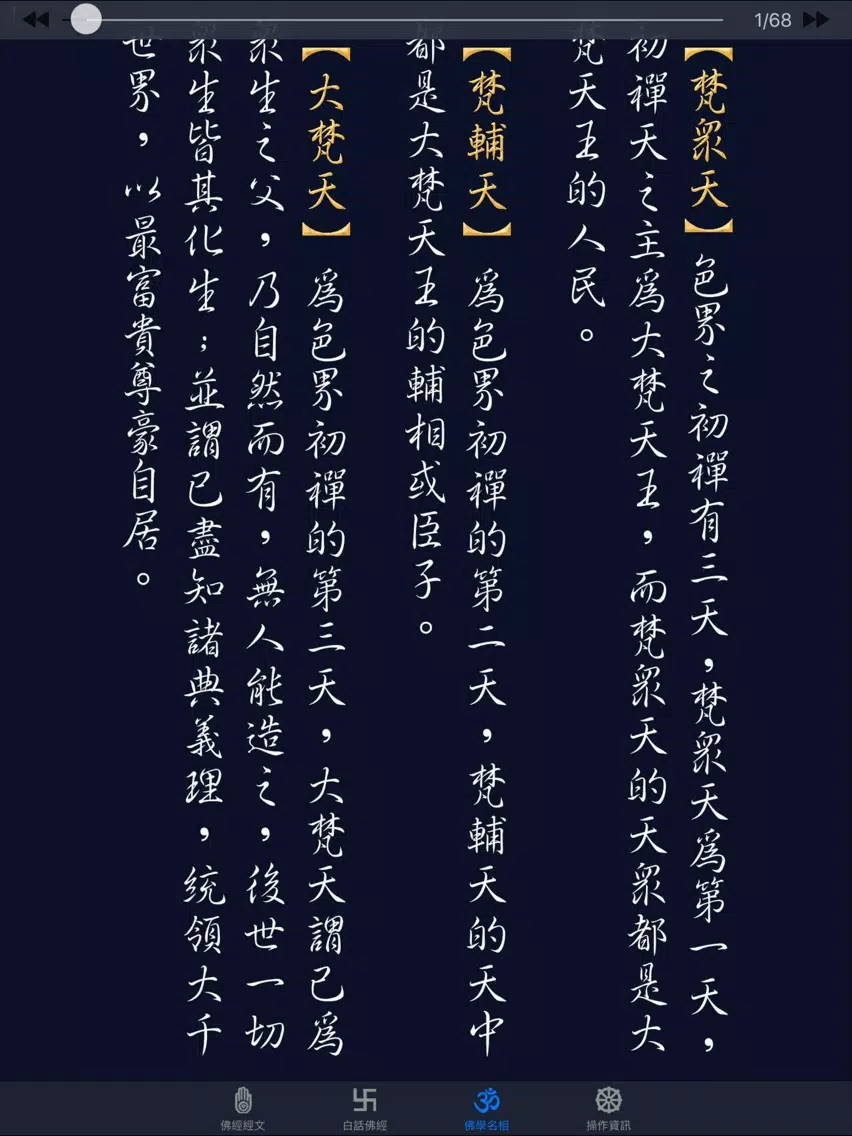 1/68
【梵眾天】色界之初禪有三天，梵眾天為第一天，
初禪天之主為大梵天王，而梵眾天的天眾都是大
梵天王的人民。
【梵輔天】為色界初禪的第二天，梵輔天的天中
都是大梵天王的輔相或臣子。
【大梵天】為色界初禪的第三天，大梵天謂己為
眾生之父，乃自然而有，無人能造之，後世一切
眾生皆其化生；並謂已盡知諸典義理，統領大千
世界，以最富貴尊豪自居。
佛經經文
白話佛經
佛學名相
操作資訊